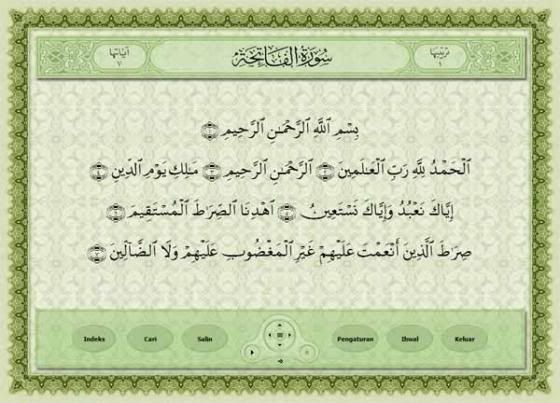 ترتيبها
١
سُورَةُ الفَاتِحَةِ
آياتها
٧
بِسْمِ ٱللَّهِ ٱلرَّحْمَٰنِ ٱلرَّحِيمِ ۝١
ٱلْحَمْدُ لِلَّهِ رَبِّ ٱلْعَٰلَمِينَ ۝٢ ٱلرَّحْمَٰنِ ٱلرَّحِيمِ ۝٣ مَٰلِكِ يَوْمِ ٱلدِّينِ ۝٤
إِيَّاكَ نَعْبُدُ وَإِيَّاكَ نَسْتَعِينُ ۝٥ ٱهْدِنَا ٱلصِّرَٰطَ ٱلْمُسْتَقِيمَ ۝٦
صِرَٰطَ ٱلَّذِينَ أَنْعَمْتَ عَلَيْهِمْ غَيْرِ ٱلْمَغْضُوبِ عَلَيْهِمْ وَلَا ٱلضَّآلِّينَ ۝٧
Indeks Cari Salin Pengaturan Ihwal Keluar